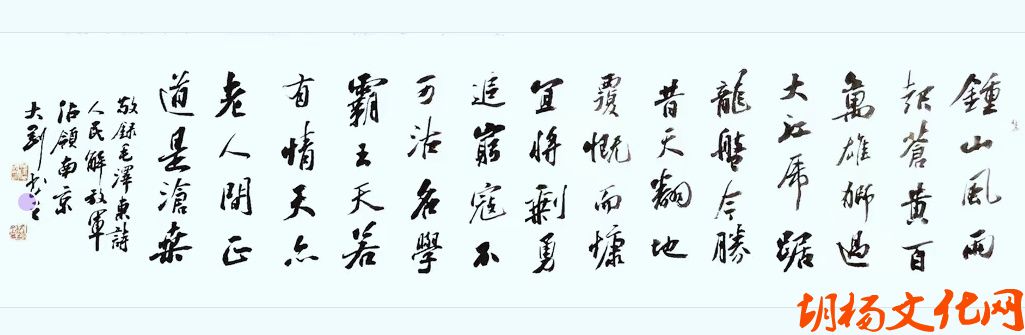 鍾山風雨
起蒼黃百
萬雄師過
大江虎踞
龍盤今勝
昔天翻地
覆慨而慷
宜將剩勇
追窮寇不
可沽名學
霸王天若
有情天亦
老人間正
道是滄桑
敬錄毛澤東詩
人民解放軍
佔領南京
大
胡杨文化网